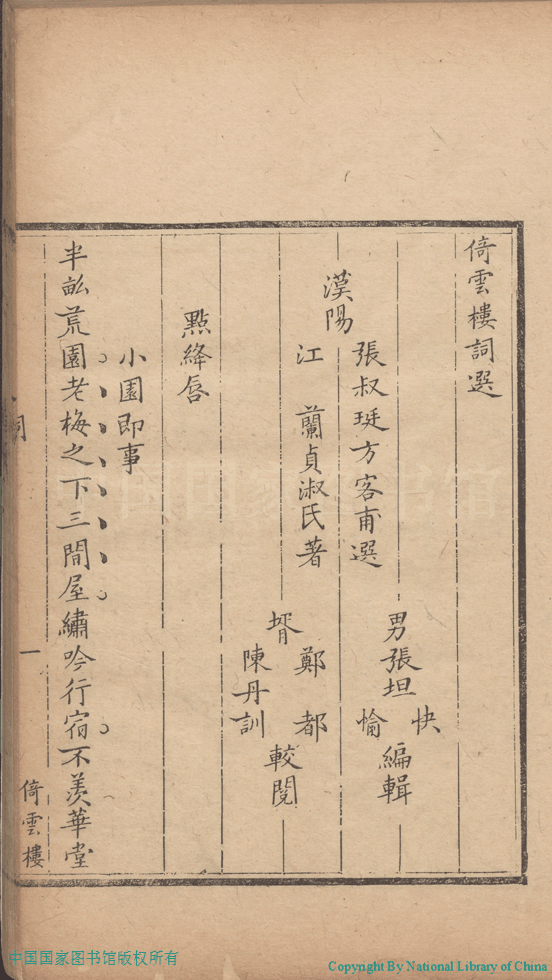 倚雲樓詞選
漢陽
張叔珽方客甫選
江 蘭貞淑氏著
男張坦
快
愉
編輯
壻
鄭 都
陳丹訓
較閱
點絳唇
小園即事
半畝荒園老梅之下三間屋繡吟行宿不羨華堂
詞
一
倚雲樓
中国国家图书馆版权所有
Copyright By National Library of China